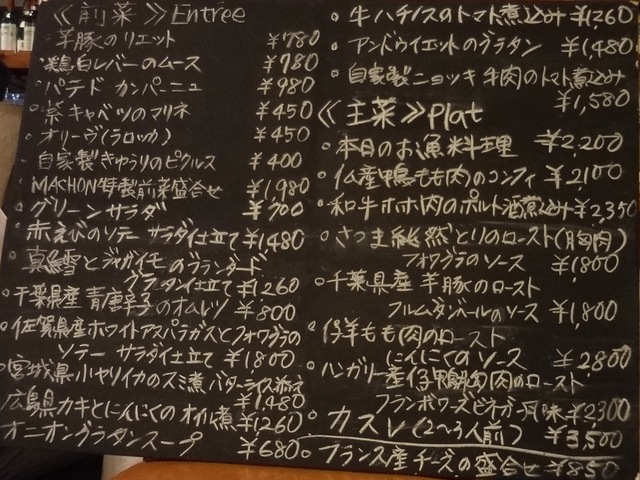 《前菜》Entrée
・芋豚のリエット ¥780
・鶏白レバーのムース ¥780
・パテド カンパーニュ ¥980
・紫キャベツのマリネ ¥450
・オリーヴ(ラロッカ) ¥450
・自家製きゅうりのピクルス ¥400
・MACHON特製前菜盛合せ ¥1,980
・グリーンサラダ ¥700
・赤えびのソテー サラダ仕立て ¥1480
・真鱈とジャガイモのブランダード
グラタン仕立て ¥1260
・千葉県産 青唐辛子のオムレツ ¥800
・佐賀県産ホワイトアスパラガスとフォワグラの
ソテー サラダ仕立て ¥1800
・宮城県小ヤリイカのスミ煮 バターライス添え
¥1,480
広島県カキとにんにくのオイル煮 ¥1260
オニオングラタンスープ ¥680
・牛ハチノスのトマト煮込み ¥1,260
・アンドゥイエットのグラタン ¥1,480
・自家製ニョッキ 牛肉のトマト煮込み
¥1,580
《主菜》Plat
・本日のお魚料理 ¥2,200
・仏産鴨もも肉のコンフィ ¥2,100
・和牛ホホ肉のポルト酒煮込み ¥2,350
・さつま純然どりのロースト(胸肉)
フォワグラのソース ¥1,800
・千葉県産 芋豚のロースト
フルムダンベールのソース ¥1,800
・仔羊もも肉のロースト
にんにくのソース ¥2800
・ハンガリー産仔鴨胸肉のロースト
フランボワーズビネガー風味 ¥2,300
・カスレ(2〜3人前) ¥3,500
・フランス産チーズの盛合せ ¥850